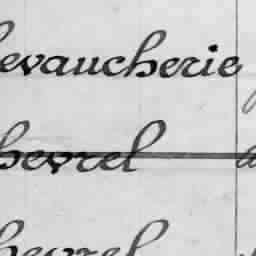 hevaucherie
hevrel
hevrel